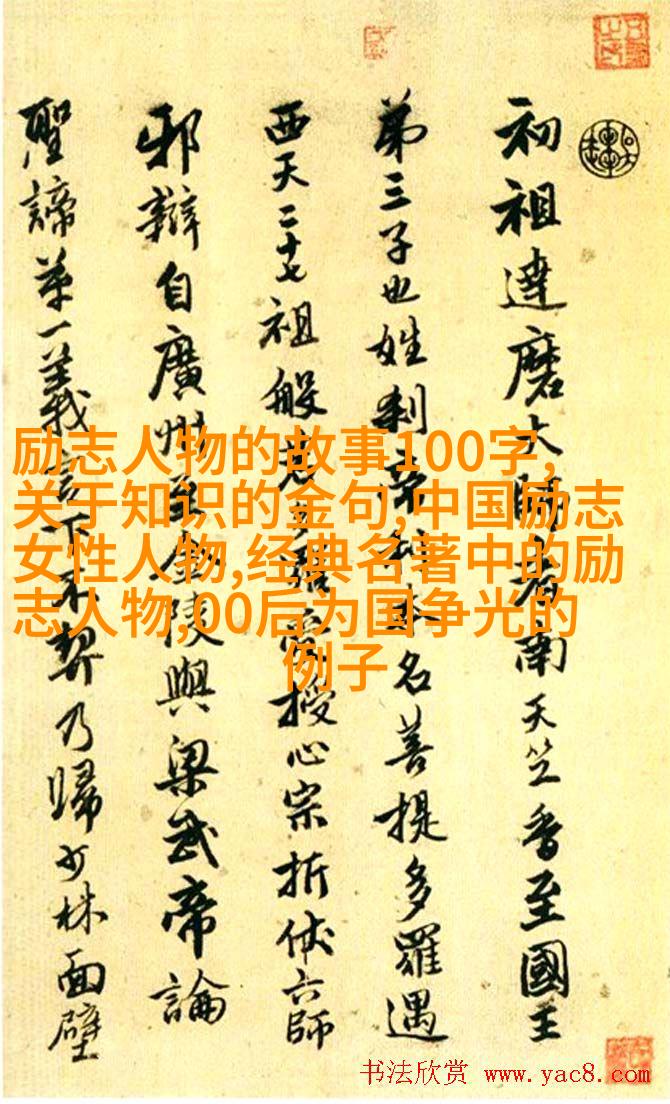 初祖達磨大師者南天竺香至國王
第三子也姓刹帝利本名菩提多羅遇
西天二十七祖般若多羅密授心宗折伏六師
邪辯自廣州至金陵與梁武帝論
聖諦第一義言下不契乃歸少林面壁
励志人物的故事100字,
关于知识的金句,中国励志
女性人物,经典名著中的励
志人物,00后为国争光的
例子
书法欣赏 www.yac8.com